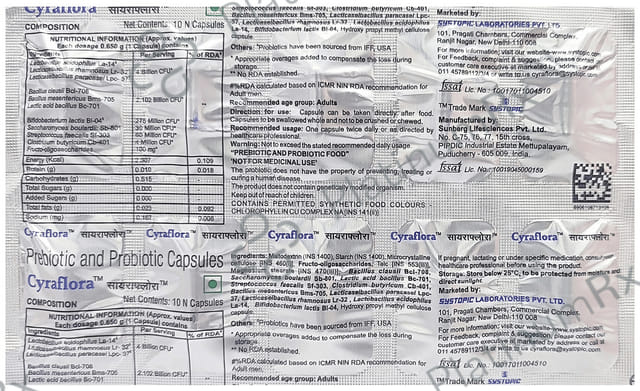 Cyraflora™ सायराफ्लोरा™
COMPOSITION Net Contents: 10 N Capsules
NUTRITIONAL INFORMATION (Approx. values)
Each dosage 0.650 g (1 Capsule) contains
Ingredients Per Serving % of RDA*
Lactobacillus acidophilus La-14*
Lacticaseibacillus rhamnosus Lr-32*
Lacticaseibacillus paracasei Lpc-37*
4 Billion CFU*
Bacillus clausii Bcl-706
Bacillus mesentericus Bms-705
Lactic acid bacillus Bc-701
2.102 Billion CFU* **
Bifidobacterium lactis Bl-04* 275 Million CFU*
Saccharomyces boulardii Sb-801 30 Million CFU*
Streptococcus faecalis Sf-303 60 Million CFU*
Clostridium butyricum Cb-401 4 Million CFU*
Fructo-oligosaccharides 100 mg*
Energy (Kcal) 2.307 0.109
Protein (g) 0.010 0.018
Carbohydrates (g) 0.515
Total Sugars (g) 0.000
Added Sugars (g) 0.000
Total fats (g) 0.023 0.092
Sodium (mg) 0.167 0.008
Streptococcus faecalis Sf-303, Clostridium butyricum Cb-401,
Bacillus mesentericus Bms-705, Lacticaseibacillus paracasei
Lpc-37, Lacticaseibacillus rhamnosus Lr-32, Lactobacillus acidophilus
La-14, Bifidobacterium lactis Bl-04, Hydroxy propyl methyl cellulose
Others: *Probiotics have been sourced from IFF, USA
* Appropriate overages added to compensate the loss during
storage.
** No RDA established.
#%RDA calculated based on ICMR NIN RDA recommendation for
Adult men.
Recommended age group: Adults
Direction for use: Capsule can be taken directly after food.
Capsules to be swallowed whole and not to be crushed or chewed.
Recommended usage: One capsule twice daily or as directed by
healthcare professional.
Warning: Not to exceed the stated recommended daily usage
"PREBIOTIC AND PROBIOTIC FOOD"
"NOT FOR MEDICINAL USE"
The probiotic does not have the property of preventing, treating or
curing a human disease.
The product does not contain genetically modified organism.
Keep out of reach of children.
CONTAINS PERMITTED SYNTHETIC FOOD COLOURS -
CHLOROPHYLLIN CU COMPLEX NA [INS 141(ii)]
Marketed by:
SYSTOPIC LABORATORIES PVT. LTD.
101, Pragati Chambers, Commercial Complex,
Ranjit Nagar, New Delhi-110 008
For more information; visit our website-www.systopic.com
For Feedback, complaint & suggestion; please contact our
customer care executive at marketed by address or call at
011 45789112/3/4 or write to us cyraflora@systopic.com
fssai Lic. No.: 10017011004510
™Trade Mark SYSTOPIC
Manufactured by
Sunberg Lifesciences Pvt. Ltd.
No. C-75, 76, 77, 15th cross,
PIPDIC Industrial Estate Mettupalayam,
Puducherry - 605 009, India.
fssai Lic. No.: 10019045000159
Cyraflora™ सायराफ्लोरा™ Cyraflora™ सायराफ्लोरा™ Cyraflora™ सायराफ्लोरा™ Cyraflora™ सायराफ्लोरा™ Cyraflora™ सायराफ्लोरा™
Prebiotic and Probiotic Capsules
Cyraflora™ सायराफ्लोरा™
COMPOSITION Net Contents: 10 N Capsules
NUTRITIONAL INFORMATION (Approx. values)
Each dosage 0.650 g (1 Capsule) contains
Ingredients Per Serving % of RDA*
Lactobacillus acidophilus La-14*
Lacticaseibacillus rhamnosus Lr-32*
Lacticaseibacillus paracasei Lpc-37*
4 Billion CFU*
Bacillus clausii Bcl-706
Bacillus mesentericus Bms-705
Lactic acid bacillus Bc-701
2.102 Billion CFU*
Ingredients: Maltodextrin (INS 1400), Starch (INS 1400), Microcrystalline
cellulose [INS 460(i)], Fructo-oligosaccharides, Talc [INS 553(iii)],
Magnesium stearate [INS 470(iii)], Bacillus clausii Bcl-706,
Saccharomyces boulardii Sb-801, Lactic acid bacillus Bc-701,
Streptococcus faecalis Sf-303, Clostridium butyricum Cb-401,
Bacillus mesentericus Bms-705, Lacticaseibacillus paracasei Lpc-
37, Lacticaseibacillus rhamnosus Lr-32, Lactobacillus acidophilus
La-14, Bifidobacterium lactis Bl-04, Hydroxy propyl methyl cellulose
Others: *Probiotics have been sourced from IFF, USA
* Appropriate overages added to compensate the loss during
storage.
** No RDA established.
#%RDA calculated based on ICMR NIN RDA recommendation for
Adult men.
Recommended age group: Adults
If pregnant, lactating or under specific medication, consult
healthcare professional before using the product.
Storage: Store below 25°C, to be protected from moisture and
direct sunlight.
Marketed by:
SYSTOPIC LABORATORIES PVT. LTD.
101, Pragati Chambers, Commercial Complex,
Ranjit Nagar, New Delhi-110 008
For more information; visit our website-www.systopic.com
For Feedback, complaint & suggestion; please contact our
customer care executive at marketed by address or call at
011 45789112/3/4 or write to us cyraflora@systopic.com
fssai Lic. No.: 10017011004510
™Trade Mark SYSTOPIC